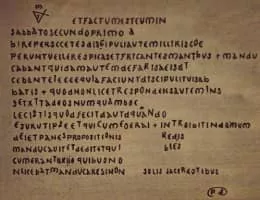 ETFACTUMESTEUMIN
SABBATOSECUNDOPRIMO A
BIREPERSCCETESDISIPULIAUTEMILLIRISCOE
PERUNTVELLERESPICASETFRICANTESMANTBUS + MANDU
CABANTQUIDAMAUTEMDEFARISAEISDT
CEBANTEIECCEQUIAFACIUNTDTSCIPULITUISAB
BATIS + QUODNONLICETRESPONDENSAUTEMINS
SETXTTADEOSNUMQUAMBOC
LECISTISQUODFECITDAUTDQUANDO
ESURUTIPSEETQUICUMEOERAI + INTROIBITINDUMUM
DEIETPANESPROPOSITIONIS REDIS
MANDUCAUITETDEDITETQUI BLES
CUMERANT QUIBUSNO
NLICEBATMANDUCARESINON SOLIS SACERDOTIBUS